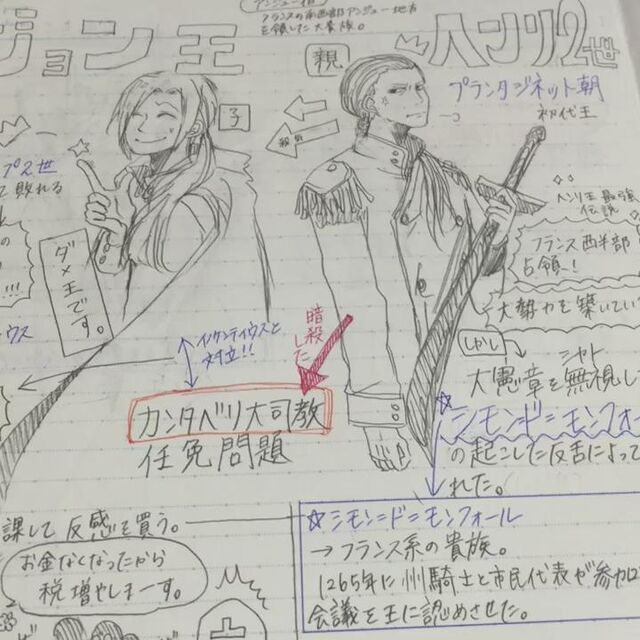 アンジュー伯
フランスの南西部アンジュー地方
を領した大貴族。
ジョン王
親
ヘンリ2世
プランタジネット朝
初代王
子
プ2世
て敗れる
の
!!!
ダメ王です。
ウス
ヘンリ王最強
伝説
フランス西半部
占領!
大勢力を築いてい
しかし
大憲章を無視し
シモン=ド=モンフォー
の起こした反乱によって
れた。
暗殺した
インケンティウスと
対立!!
カンタベリ大司教
任免問題
課して反感を買う。
お金なくなったから
税増やしまーす。
☆シモン=ド=モンフォール
→フランス系の貴族。
1265年に州騎士と市民代表が参加
会議を王に認めさせた。